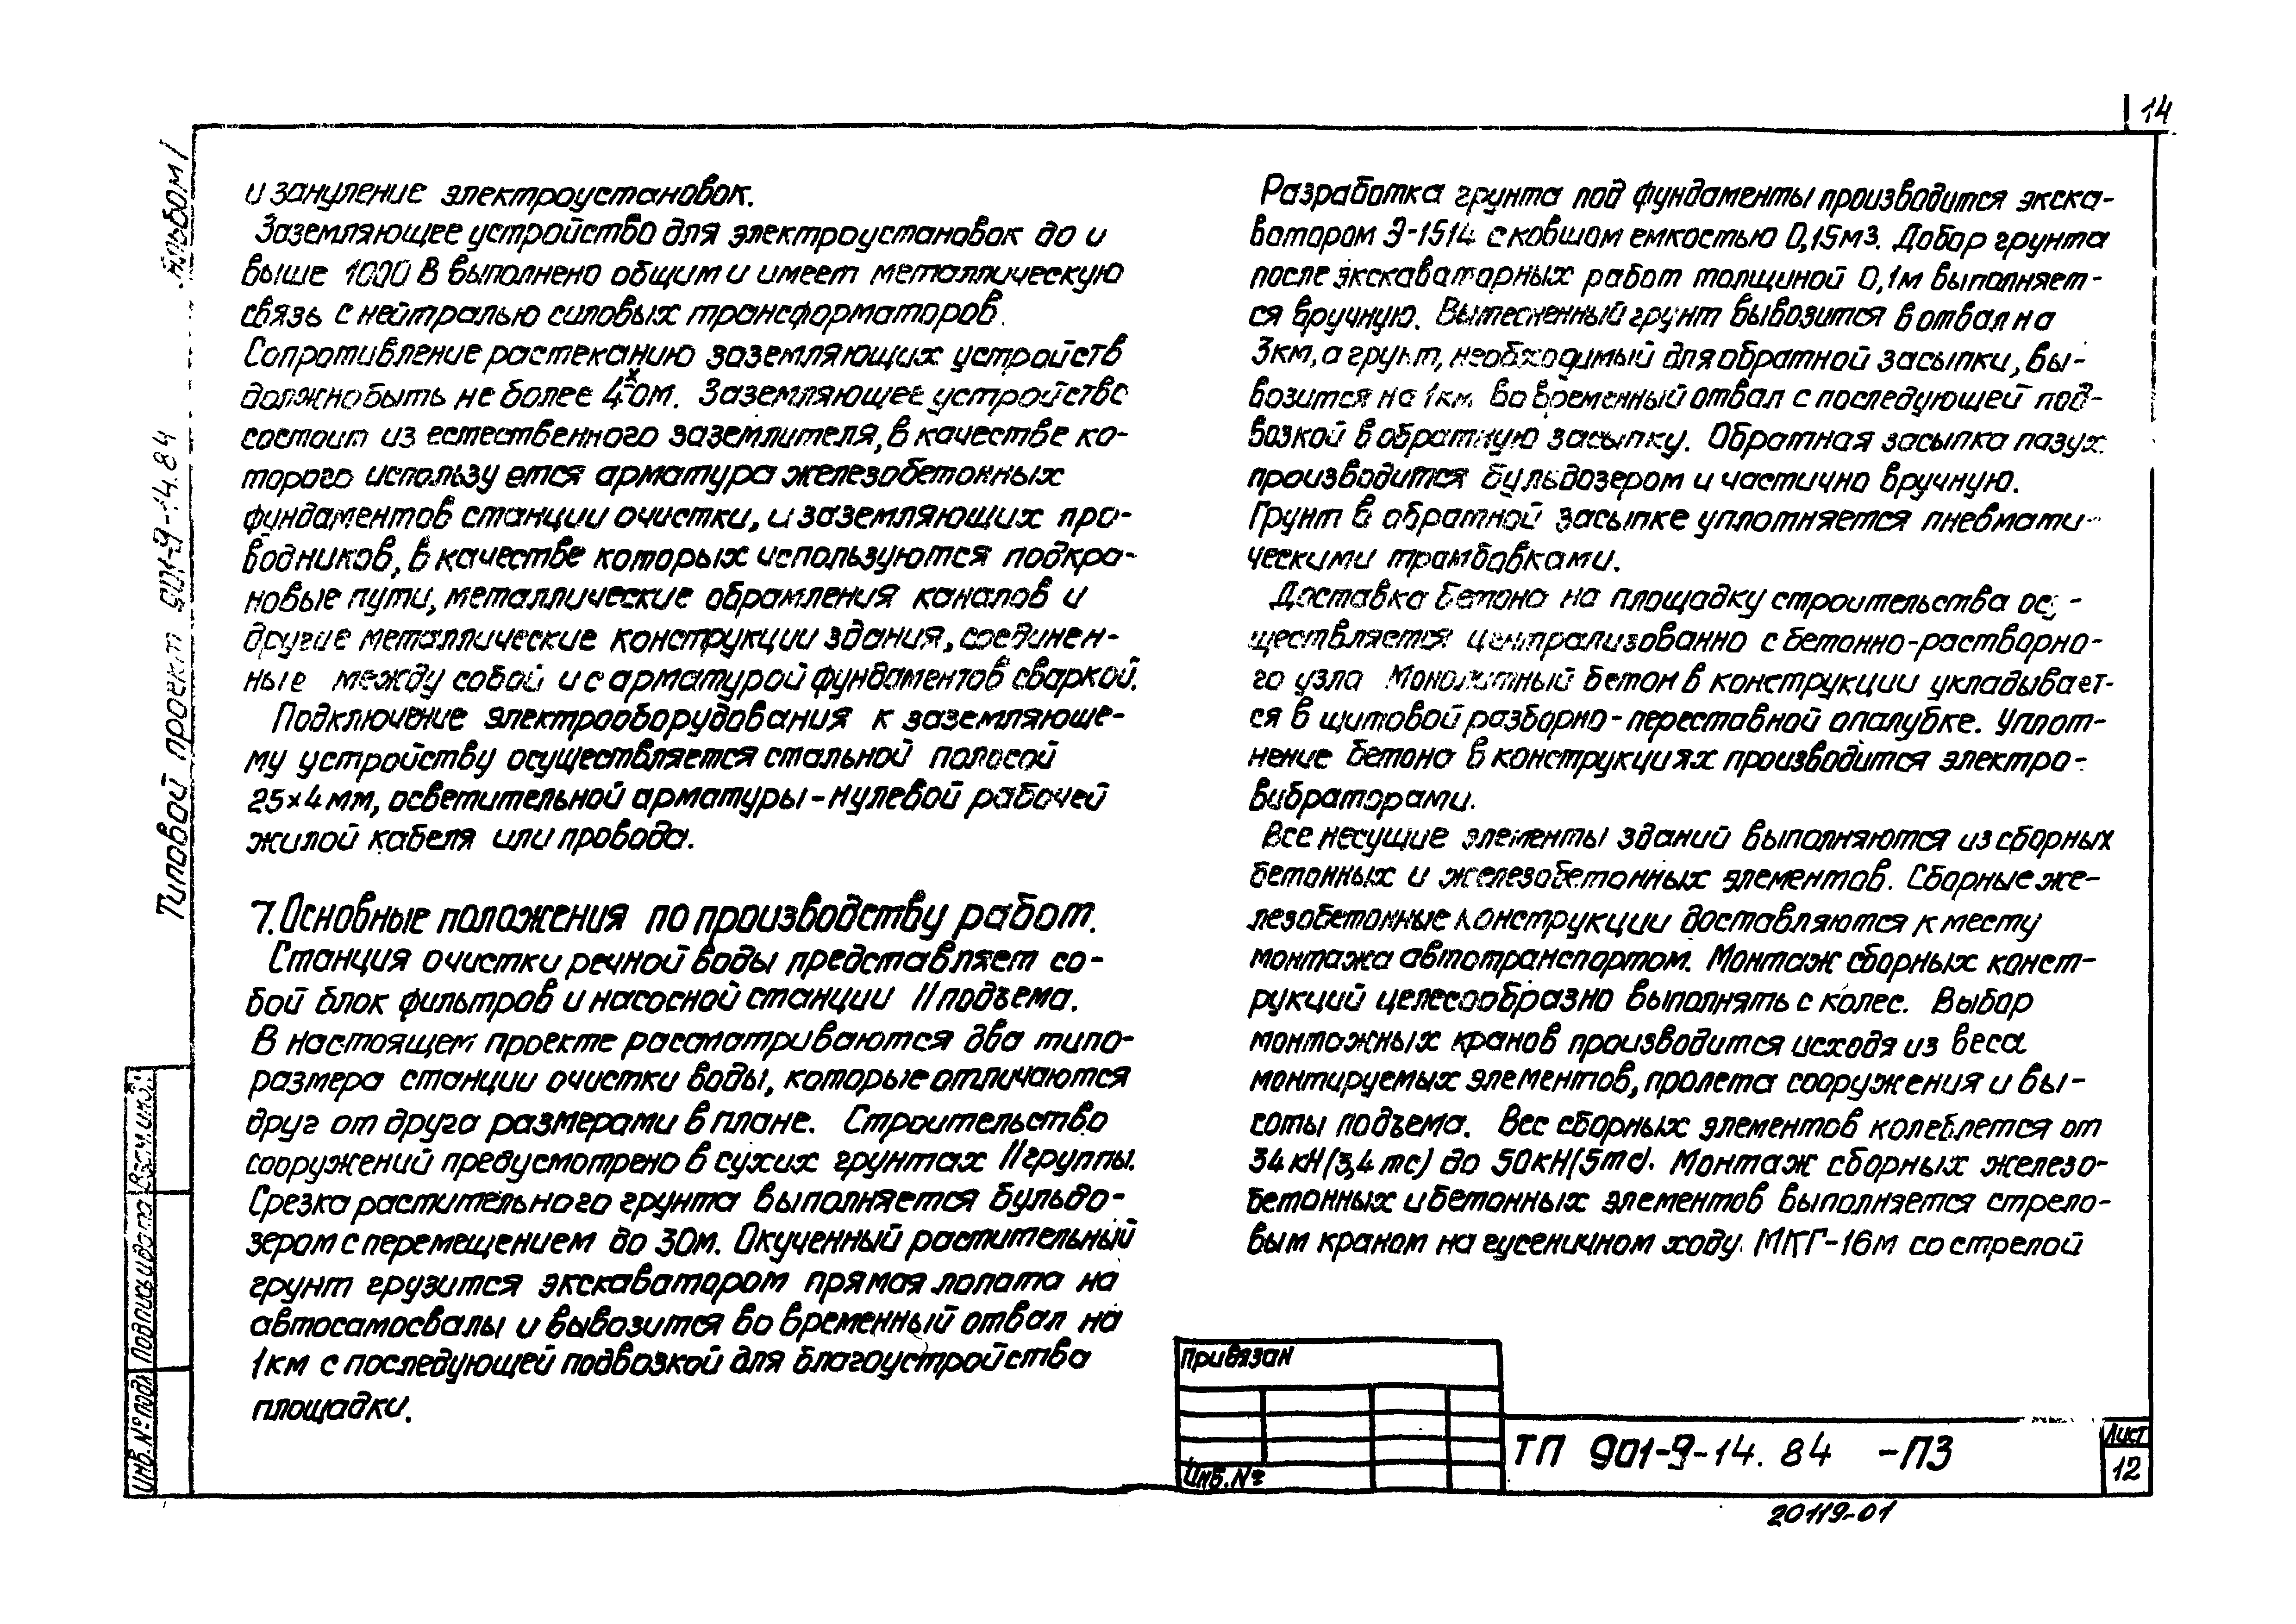 14
Альбом I
Типовой проект 901-9-14.84
и зануление электроустановок.
Заземляющее устройство для электроустановок до и
выше 1000 В выполнено общим и имеет металлическую
связь с нейтралью силовых трансформаторов.
Сопротивление растеканию заземляющих устройств
должно быть не более 4ˣ Ом. Заземляющее устройство
состоит из естественного заземлителя, в качестве ко-
торого используется арматура железобетонных
фундаментов станции очистки, и заземляющих про-
водников, в качестве которых используются подкра-
новые пути, металлические обрамления каналов и
другие металлические конструкции здания, соединен-
ные между собой и с арматурой фундаментов сваркой.
Подключение электрооборудования к заземляюще-
му устройству осуществляется стальной полосой
25×4 мм, осветительной арматуры - нулевой рабочей
жилой кабеля или провода.
7. Основные положения по производству работ.
Станция очистки речной воды представляет со-
бой блок фильтров и насосной станции II подъема.
В настоящем проекте рассматриваются два типо-
размера станции очистки воды, которые отличаются
друг от друга размерами в плане. Строительство
сооружений предусмотрено в сухих грунтах II группы.
Срезка растительного грунта выполняется бульдо-
зером с перемещением до 30м. Окученный растительный
грунт грузится экскаватором прямая лопата на
автосамосвалы и вывозится во временный отвал на
1км с последующей подвозкой для благоустройства
площадки.
Разработка грунта под фундаменты производится экска-
ватором Э-1514 с ковшом емкостью 0,15м3. Добор грунта
после экскаваторных работ толщиной 0,1м выполняет-
ся вручную. Вытесненный грунт вывозится в отвал на
3км, а грунт, необходимый для обратной засыпки, вы-
возится на 1км во временный отвал с последующей под-
возкой в обратную засыпку. Обратная засыпка пазух
производится бульдозером и частично вручную.
Грунт в обратной засыпке уплотняется пневмати-
ческими трамбовками.
Доставка бетона на площадку строительства осу-
ществляется централизованно с бетонно-растворно-
го узла Монолитный бетон в конструкции укладывает-
ся в щитовой разборно-переставной опалубке. Уплот-
нение бетона в конструкциях производится электро-
вибраторами.
Все несущие элементы зданий выполняются из сборных
бетонных и железобетонных элементов. Сборные же-
лезобетонные конструкции доставляются к месту
монтажа автотранспортом. Монтаж сборных конст-
рукций целесообразно выполнять с колес. Выбор
монтажных кранов производится исходя из веса
монтируемых элементов, пролета сооружения и вы-
соты подъема. Вес сборных элементов колеблется от
34 кН (3,4 тс) до 50 кН (5 тс). Монтаж сборных железо-
бетонных и бетонных элементов выполняется стрело-
вым краном на гусеничном ходу МКГ-16м со стрелой
Инв. № подл
Подпись и дата
Взам. инв. №
Привязан
Инв. №
ТП 901-9-14.84 -ПЗ
Лист
12
20119-01